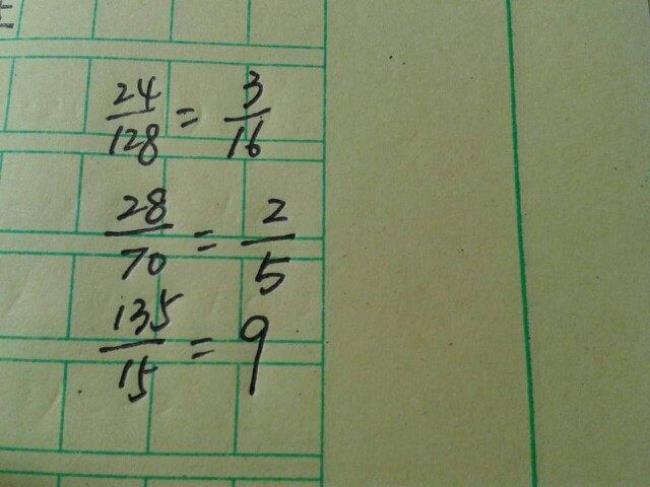 24/128 = 3/16
28/70 = 2/5
135/15 = 9